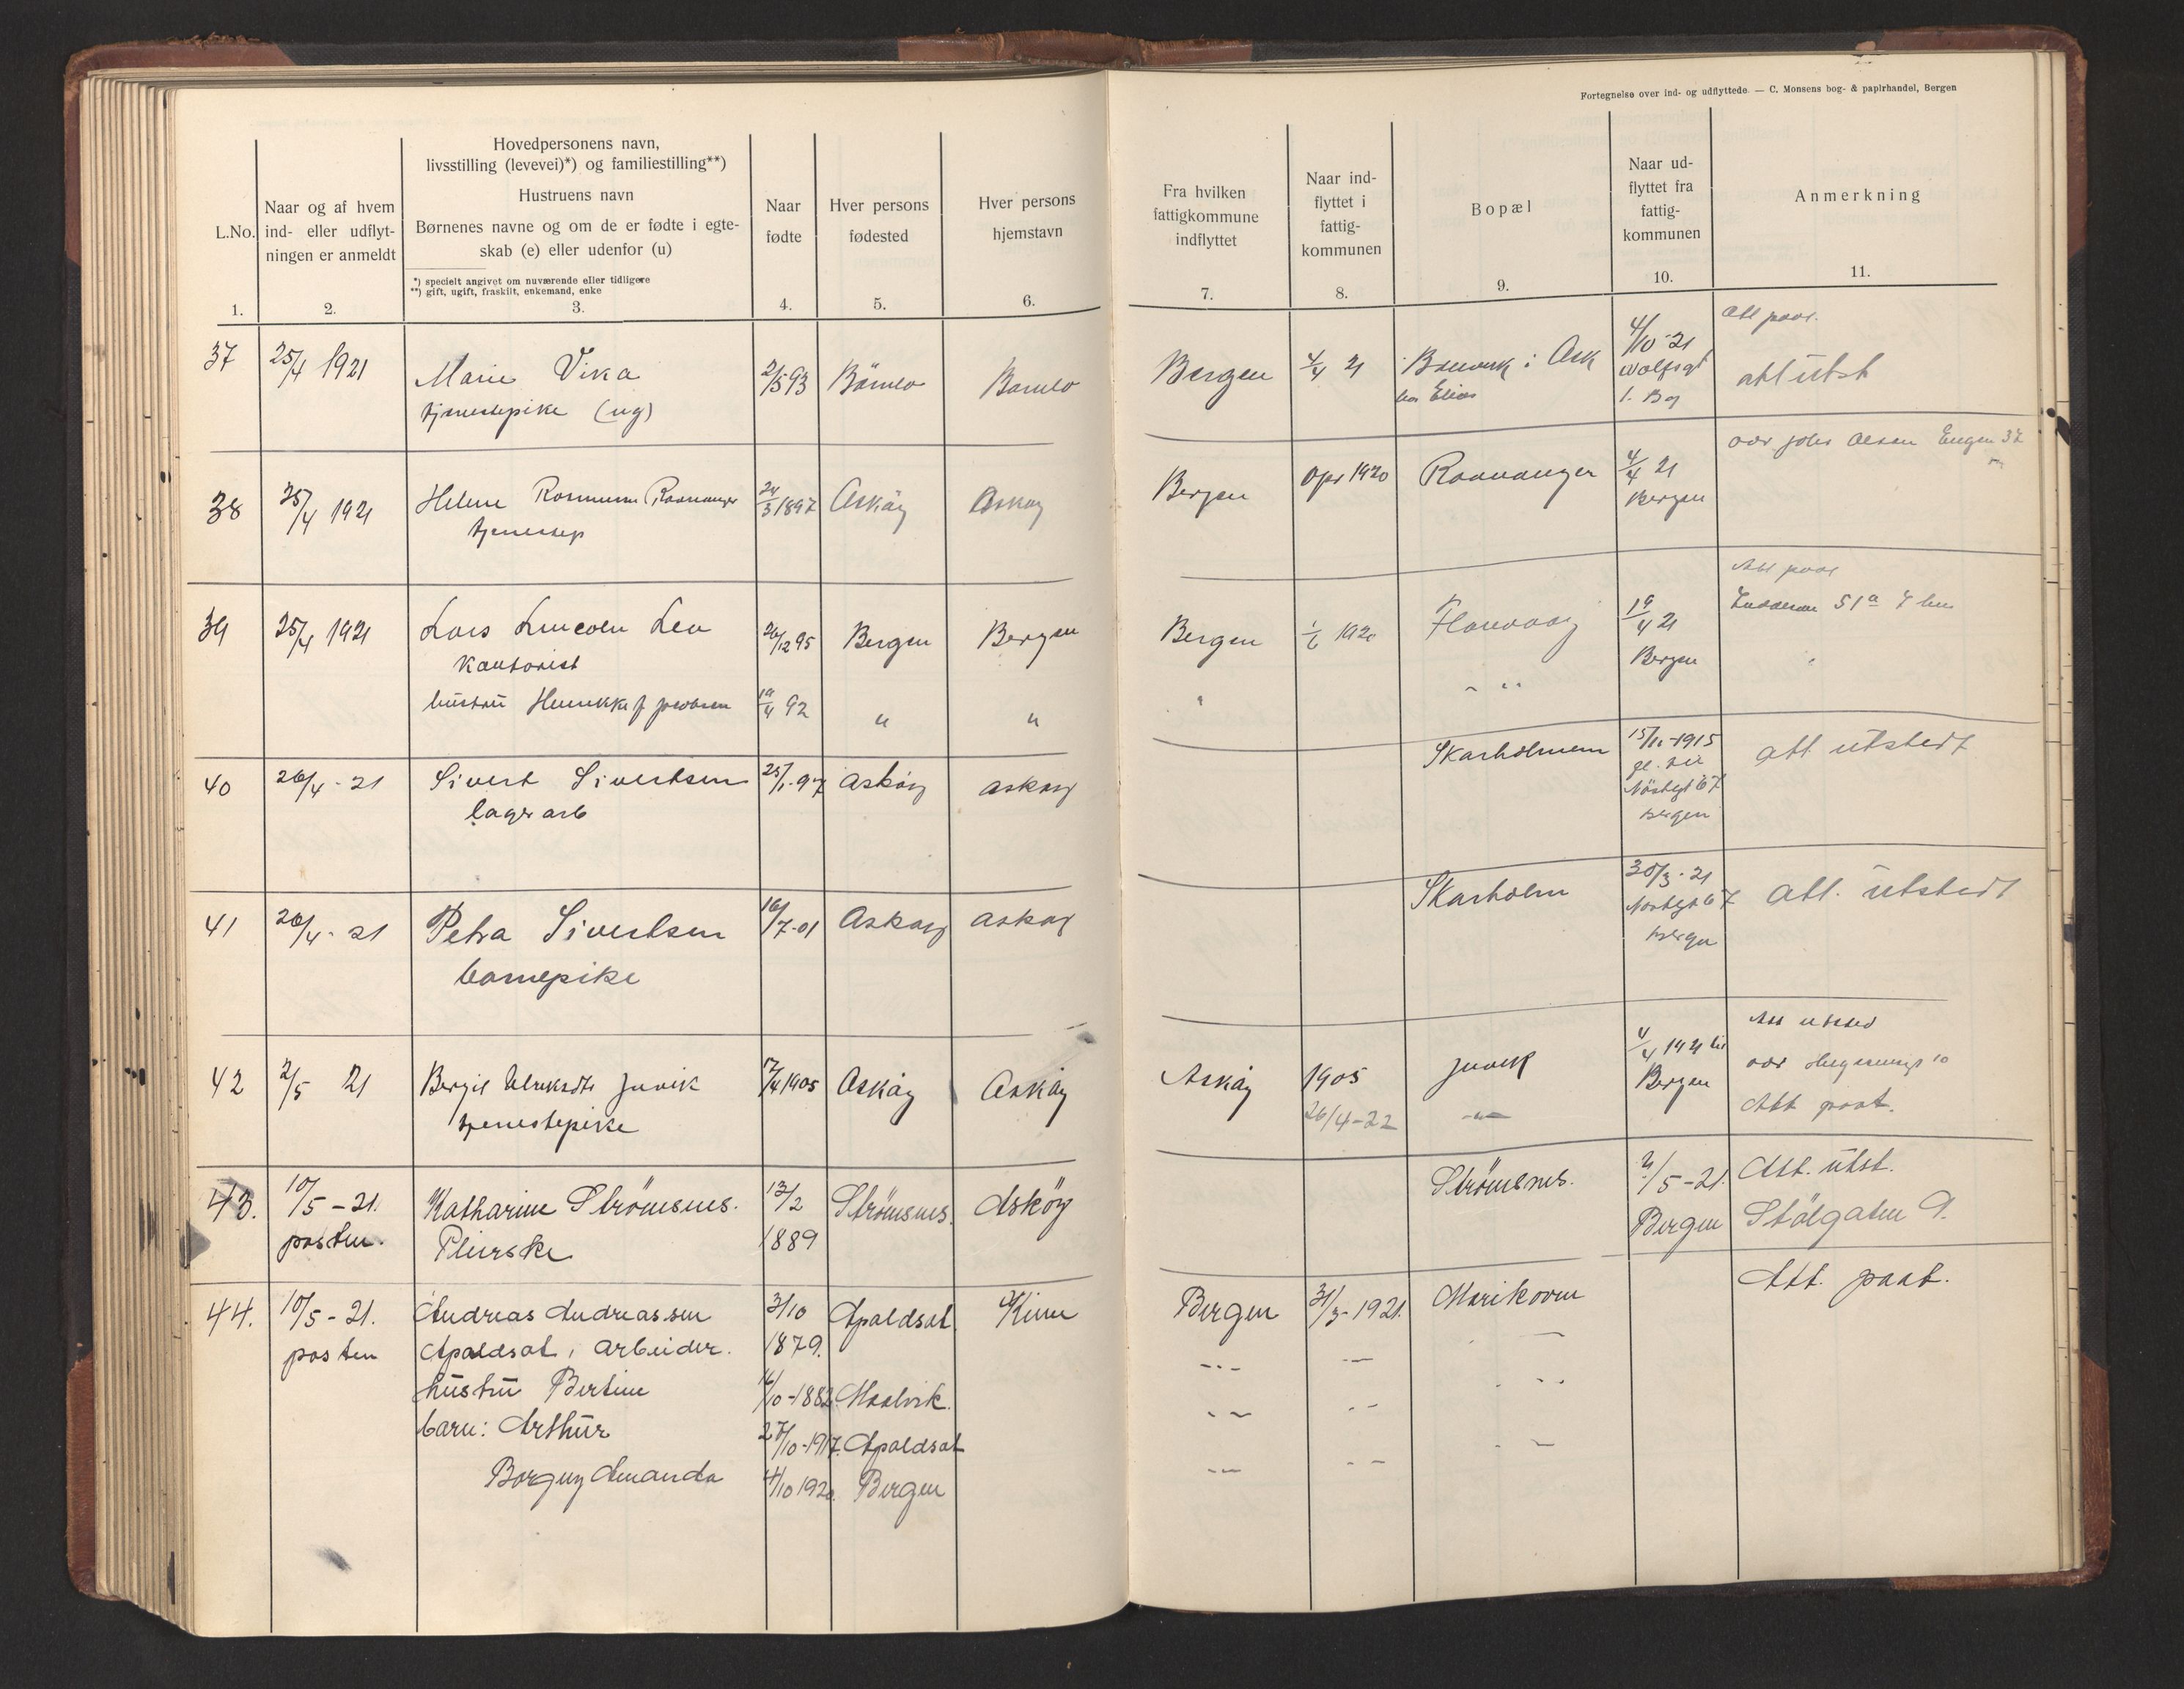 Fortegnelse over ind- og udflyttede. — C. Monsens bog- & papirhandel, Bergen
L.No.
1.
Naar og af hvem
ind- eller udflyt-
ningen er anmeldt
2.
Hovedpersonens navn,
livsstilling (levevei)*) og familiestilling**)
Hustruens navn
Børnenes navne og om de er fødte i egte-
skab (e) eller udenfor (u)
*) specielt angivet om nuværende eller tidligere
**) gift, ugift, fraskilt, enkemand, enke
3.
Naar
fødte
4.
Hver persons
fødested
5.
Hver persons
hjemstavn
6.
Fra hvilken
fattigkommune
indflyttet
7.
Naar ind-
flyttet i
fattig-
kommunen
8.
Bopæl
9.
Naar ud-
flyttet fra
fattig-
kommunen
10.
Anmerkning
11.
37 25/4 1921 Marie Vika 2/5 93 Bömlo Bömlo Bergen 4/4 21 i Ask 4/10-21
tjenestepike (ug) hos Elias
att utst
38 25/4 1921 Helene Raunanger 24/3 1897 Askøy Askøy Bergen Apr 1920 Raunanger 4/4 21
tjenestep Bergen
39 25/4 1921 Lars Lincoln Lea 26/12 95 Bergen Bergen Bergen 1920 Florvaag 19/4 21
Kontorist Bergen
hustru 19/4 92 " "
40 26/4-21 Sivert Sivertsen 25/1-97 Askøy Askøy Skarholmen 15/11-1915 att utstedt
lagerarb Nöstegt 67
Bergen
41 26/4-21 Petra Sivertsen 16/7-01 Askøy Askøy Skarholm 30/3-21 att. utstedt
barnepike Nöstegt 67
Bergen
42 2/5 21 Juvik 17/4 1905 Askøy Askøy Askøy 1905 Juvik 4/4 1921 til
tjenestepike 26/4-22 Bergen
Att paat.
43. 10/5-21. Katharine Strömsnes. 13/2 Strömsnes. Asköy Strömsnes. 2/5-21. Att. utst.
posten. Pleierske 1889 Bergen Stölgaten 9.
44. 10/5-21. Andreas Andreassen 3/10 Apaldsat. Kinn Bergen 31/3-1921. Marikoven Att. paat.
posten Apaldsat, arbeider. 1879.
hustru Bertine 16/10-1882 Maalvik.
barn: Arthur 27/10-1917. Apaldsat
Borguy Amanda 4/10 1920. Bergen